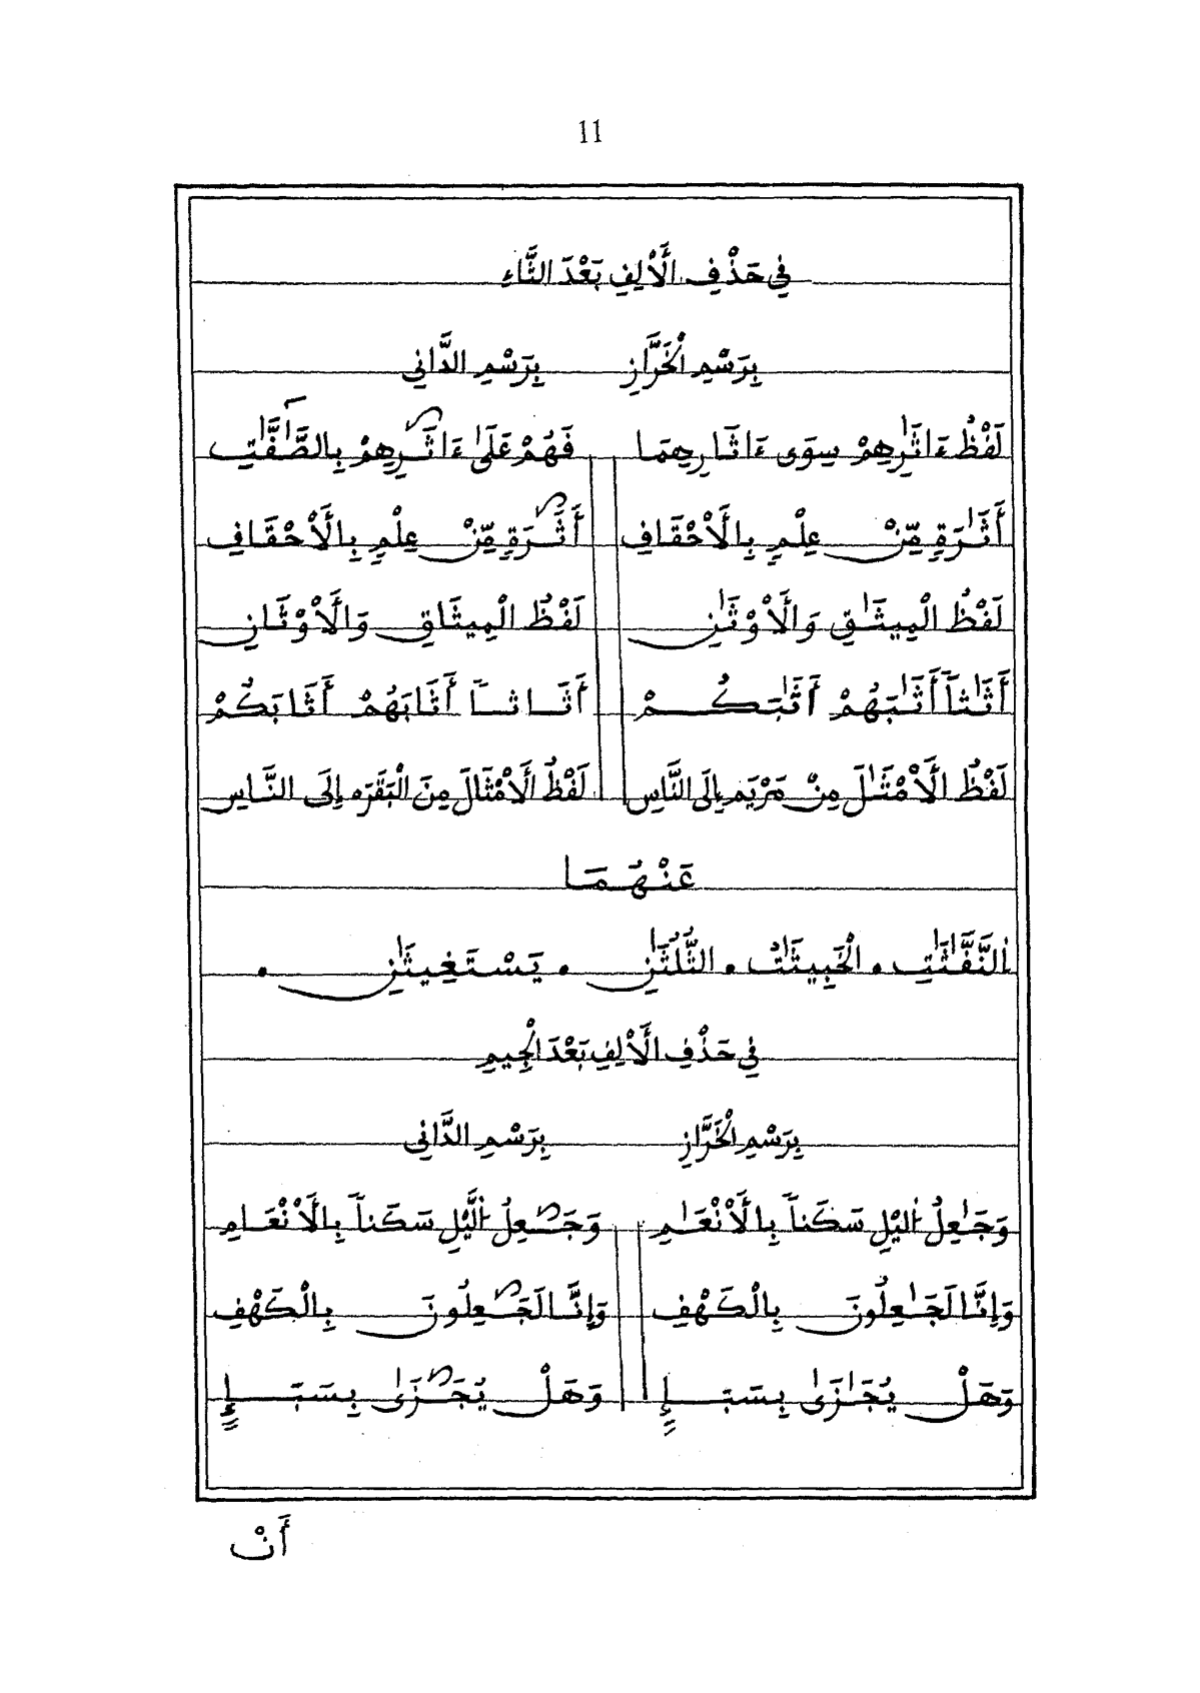 11
فِي حَذْفِ الَأْلِفِ بَعْدَ الثَّاءِ
بِرَسْمِ الْخَرَّازِ بِرَسْمِ الدَّانِي
لَفْظُ ءَاثَٰرِهِمْ سِوَى ءَاثَارِهِمَا فَهُمْ عَلَىٰ ءَاثَٰرِهِمْ بِالصَّٰٓفَّٰتِ
أَثَٰرَةٍ مِّنْ عِلْمٍ بِالَأْحْقَافِ أَثَٰرَةٍ مِّنْ عِلْمٍ بِالَأْحْقَافِ
لَفْظُ الْمِيثَٰقِ وَالَأْوْثَٰنِ لَفْظُ الْمِيثَاقِ وَالَأْوْثَانِ
أَثَٰثاً أَثَٰبَهُمْ أَثَٰبَكُمْ أَثَاثاً أَثَابَهُمْ أَثَابَكُمْ
لَفْظُ الَأْمْثَٰلَ مِنْ مَرْيَم إِلَى النَّاسِ لَفْظُ الَأْمْثَالَ مِنَ الْبَقَرَه إِلَى النَّاسِ
عَنْهُمَا
النَّفَّٰثَٰتِ • الْخَبِيثَٰتُ • الثُّلُثَٰنِ • يَسْتَغِيثَٰنِ •
فِي حَذْفِ الَأْلِفِ بَعْدَ الْجِيمِ
بِرَسْمِ الْخَرَّازِ بِرَسْمِ الدَّانِي
وَجَٰعِلُ اليْلِ سَكَناً بِالَأْنْعَٰمِ وَجَٰعِلُ الَّيْلِ سَكَناً بِالَأْنْعَامِ
وَإِنَّا لَجَٰعِلُونَ بِالْكَهْفِ وَإِنَّا لَجَٰعِلُونَ بِالْكَهْفِ
وَهَلْ يُجَٰزَىٰ بِسَبَإٍ وَهَلْ يُجَٰزَىٰ بِسَبَإٍ
أَنْ